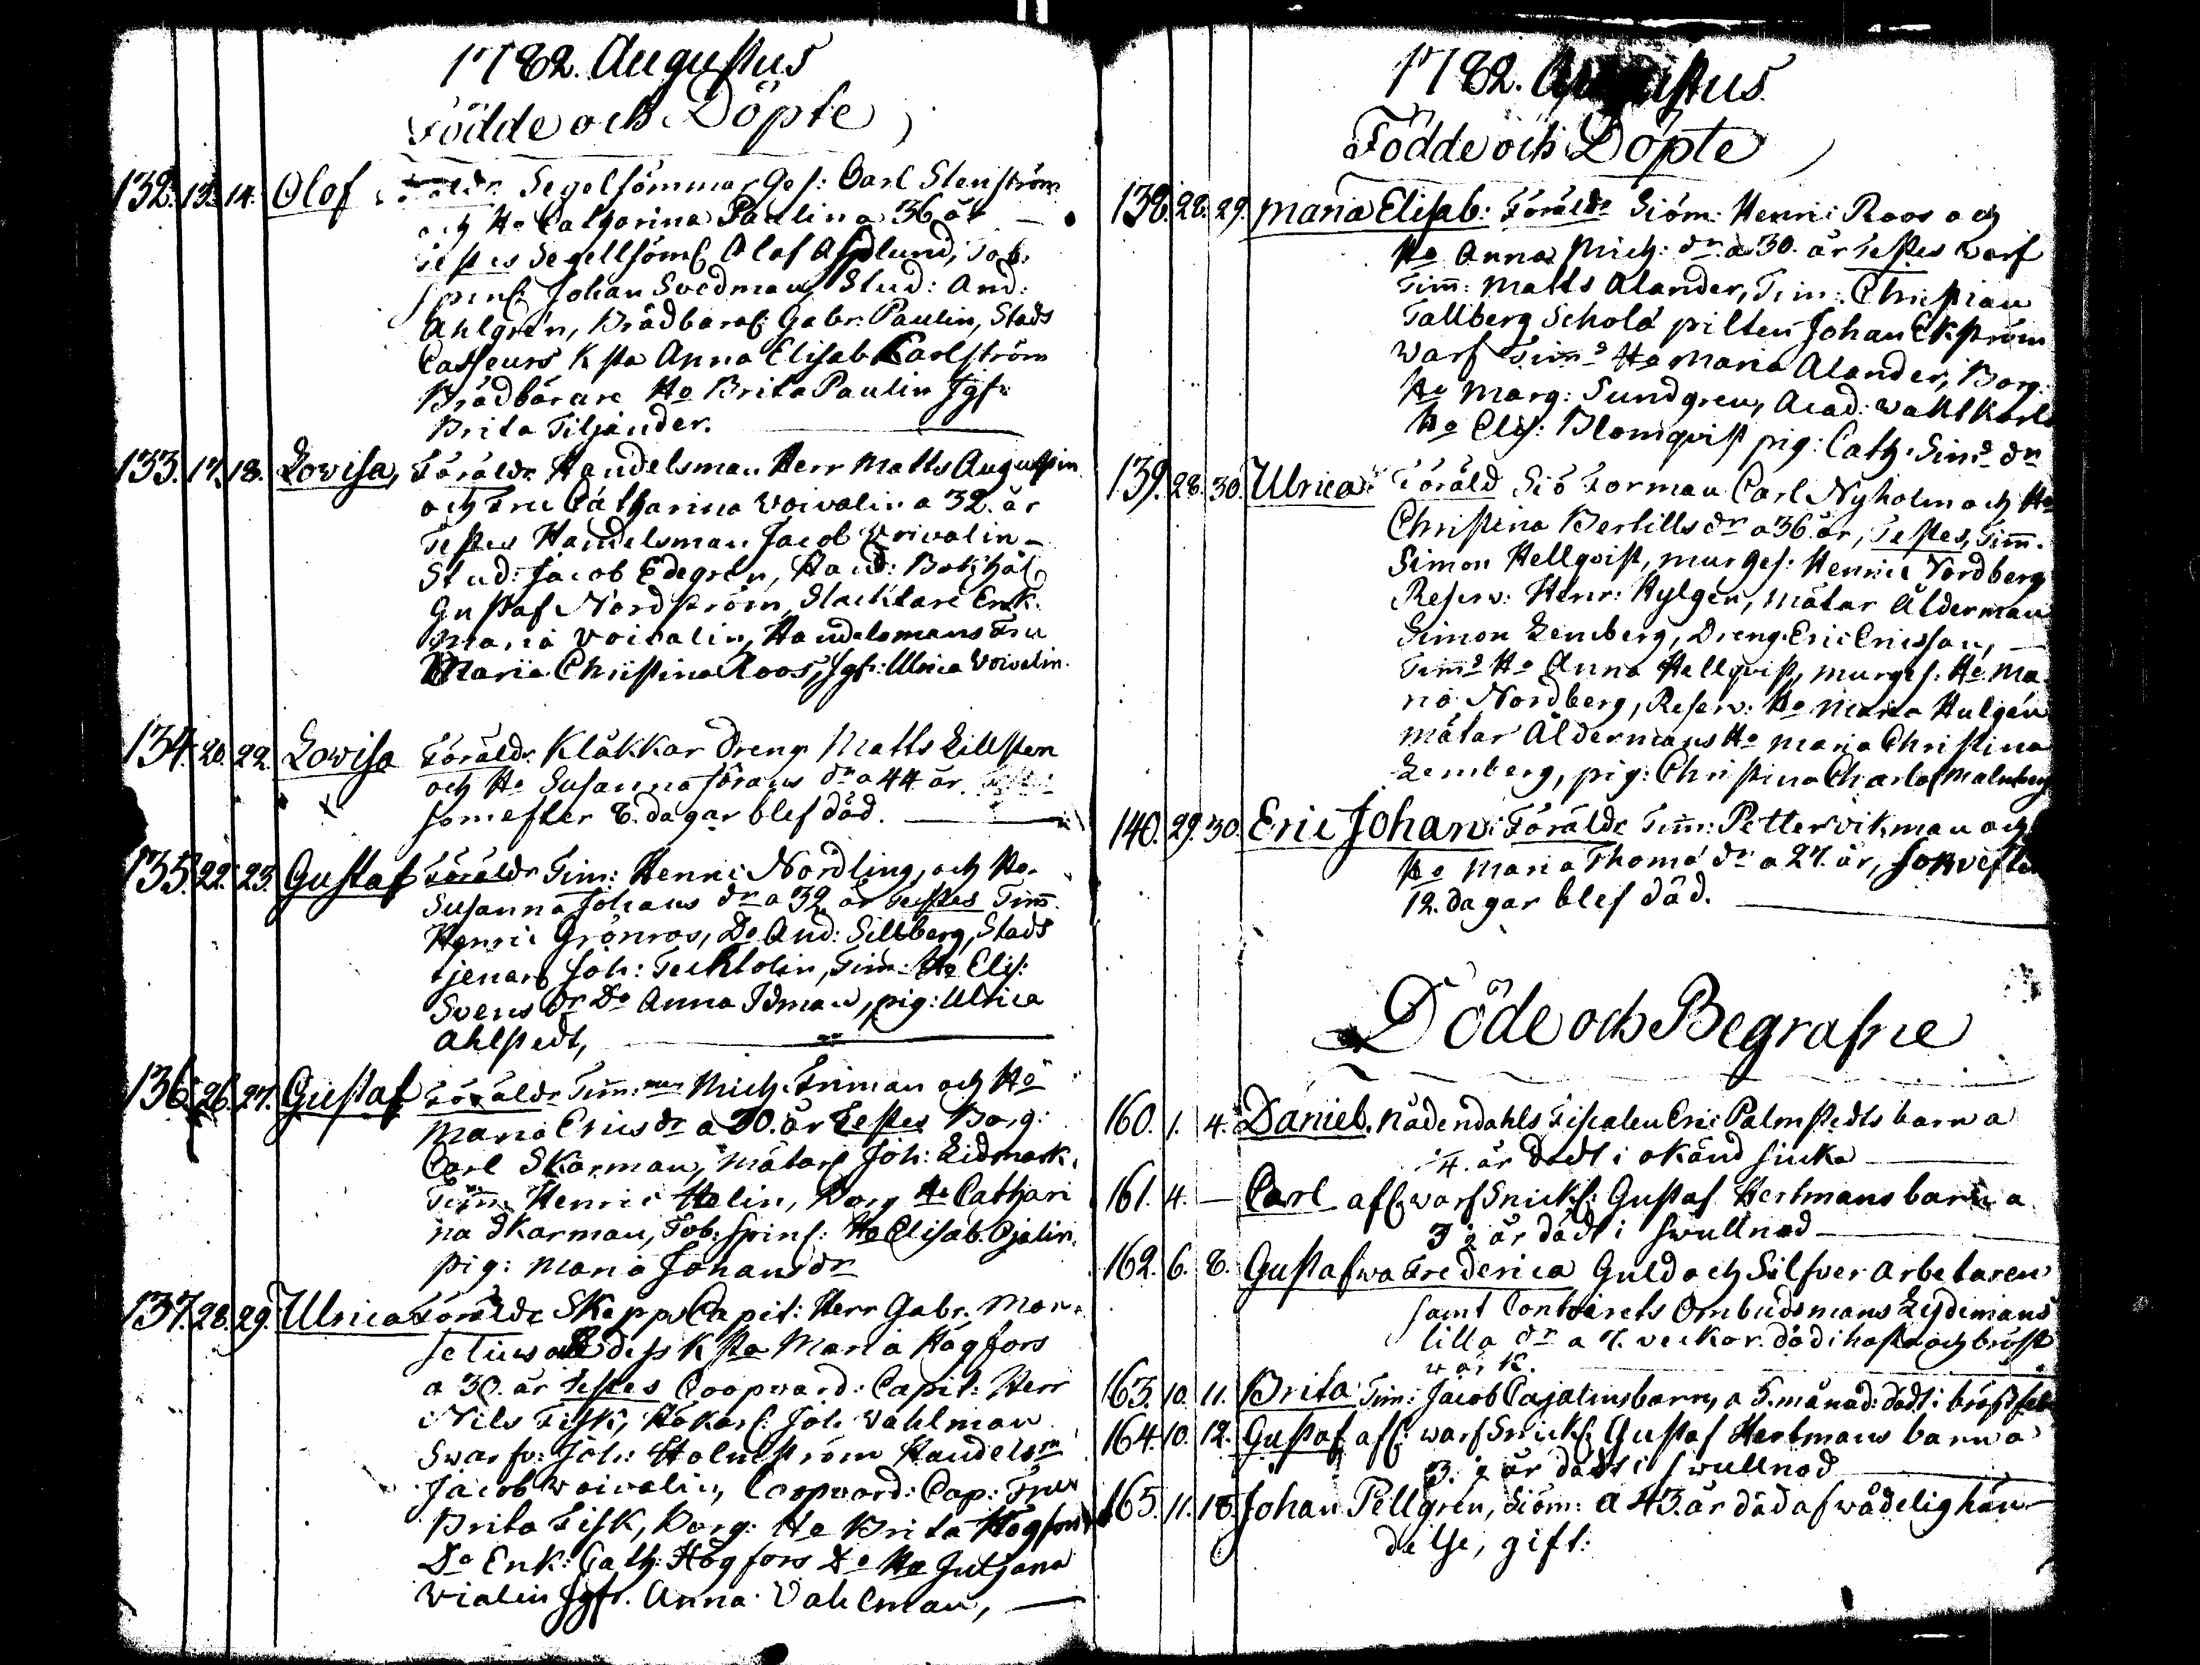 1782. Augustus
Födde och Döpte
132. 13. 14. Olof Föräldr. Segelsömmar Ges: Carl Stenström
och Ho Catharina Paulin a 36 år
Testes Segellsöm: Olof Asplund, Tob:
spins: Johan Svedman, Stud: And:
Ahlgrén, Brädbärar: Gabr: Paulin, Stads
Casseurs K sta Anna Elisab Carlström
Brädbärare Ho Brita Paulin Jgfr:
Brita Tiljander.
133. 17. 18. Lovisa, Föräldr. Handelsman Herr Matts Augustin
och Fru Catharina Voivalin a 32. år
Testes Handelsman Jacob Voivalin
Stud: Jacob Edegrén, Hand: Bokhål
Gustaf Nordström, Slacktare Enk:
Maria Voivalin, Handelsmans Fru
Maria Christina Roos, Jgfr: Ulrica Voivalin.
134. 20. 22. Lovisa Föräldr. Kläkkar Dreng Matts Lillsten
och Ho Susanna Jörans dr a 44 år.
som efter 8. dagar blef död.
135. 22. 23. Gustaf Föräldr Tim: Henric Nordling, och Ho
Susanna Johans dr a 32 år Testes Timm.
Henric Grönros, Do And: Sillberg, Stads
tjenar: Joh: Teckholin, Tim: Ho Elis:
Svens dr Do Anna Idman, pig: Ulrica
Ahlstedt,
136 26. 27. Gustaf Föräldr Timm: Mich: Friman och Ho
Maria Erics dr a 30. år Testes Borg:
Carl Skarman, Mätar: Joh: Lidmark.
Timm: Henric Helin, Borg Ho Cathari
na Skarman, Tob: spins: Ho Elisab. Ojalin.
pig: Maria Johans dr
137. 28. 29. Ulrica Föräldr Skepps Capit: Herr Gabr. Mar-
selius dess K sta Maria Högfors
a 30. år Testes Coopvard: Capit: Herr
Nils Fisk, Håkar: Joh: Vahlman
Swarfv: Joh: Holmström Handelsm
Jacob Woivalin, Coopvard: Cap: Fru
Brita Fisk, Borg: Ho Brita Högfors
Do Enk: Cath: Högfors Do Ho Juljana
Wialin Jgfr. Anna Vahlman,
1782. Augustus.
Födde och Döpte
138. 28. 29. Maria Elisab: Föräldr Siöm: Henric Roos och
Ho Anna Mich: dr. a 30. år Testes Warf
Timm: Matts Alander, Tim: Christian
Tallberg Schola pilten Johan Ekström
Warf Timm Ho Maria Alander, Borg.
Ho Marg: Sundgren, Acad: Wakt Karls
Ho Elis: Blomqvist pig: Cath: Sim: dr
139. 28. 30. Ulrica: Föräld Siö Forman Carl Nyholm och Ho
Christina Bertills dr a 36. år, Testes, Timm.
Simon Hellqvist, Murges: Henric Nordberg
Reserv: Henr: Hylgén, Mätar Ålderman
Simon Lemberg, Dreng Eric Ericsson,
Timm: Ho Anna Hellqvist, murges: Ho Ma
ria Nordberg, Reserv: Ho Maria Hulgén
Mätar Åldermans Ho Maria Christina
Lemberg, pig: Christina Charlot Malmberg
140. 29. 30. Eric Johan: Föräldr Timm: Petter Vikman och
Ho Maria Thomæ dr a 27. år, som efter
12. dagar blef död.
Döde och Begrafne
160. 1. 4. Daniel. Nådendahls Fiscalen Eric Palmstedts barn a
1/4. år dödt i okänd siuka
161. 4. Carl aff warf Snick: Gustaf Hertmans barn a
3 1/2 år dödt i swullnad
162. 6. 8. Gustafwa Frederica Guld och Silfver arbetaren
samt Contoirets Ombudsmans Lydemans
lilla dr a 7. veckor. död i hosta och bröst
wärk.
163. 10. 11. Brita Tim: Jacob Cajalins barn, a 5. månad: dödt i bröst feb
164. 10. 12. Gustaf aff: warf Snick: Gustaf Hertmans barn a
3. 1/2 år dödt i swullnad
165. 11. 15. Johan Pellgrén, Siöm: a 43. år död af wådelig hän-
delse, gift: